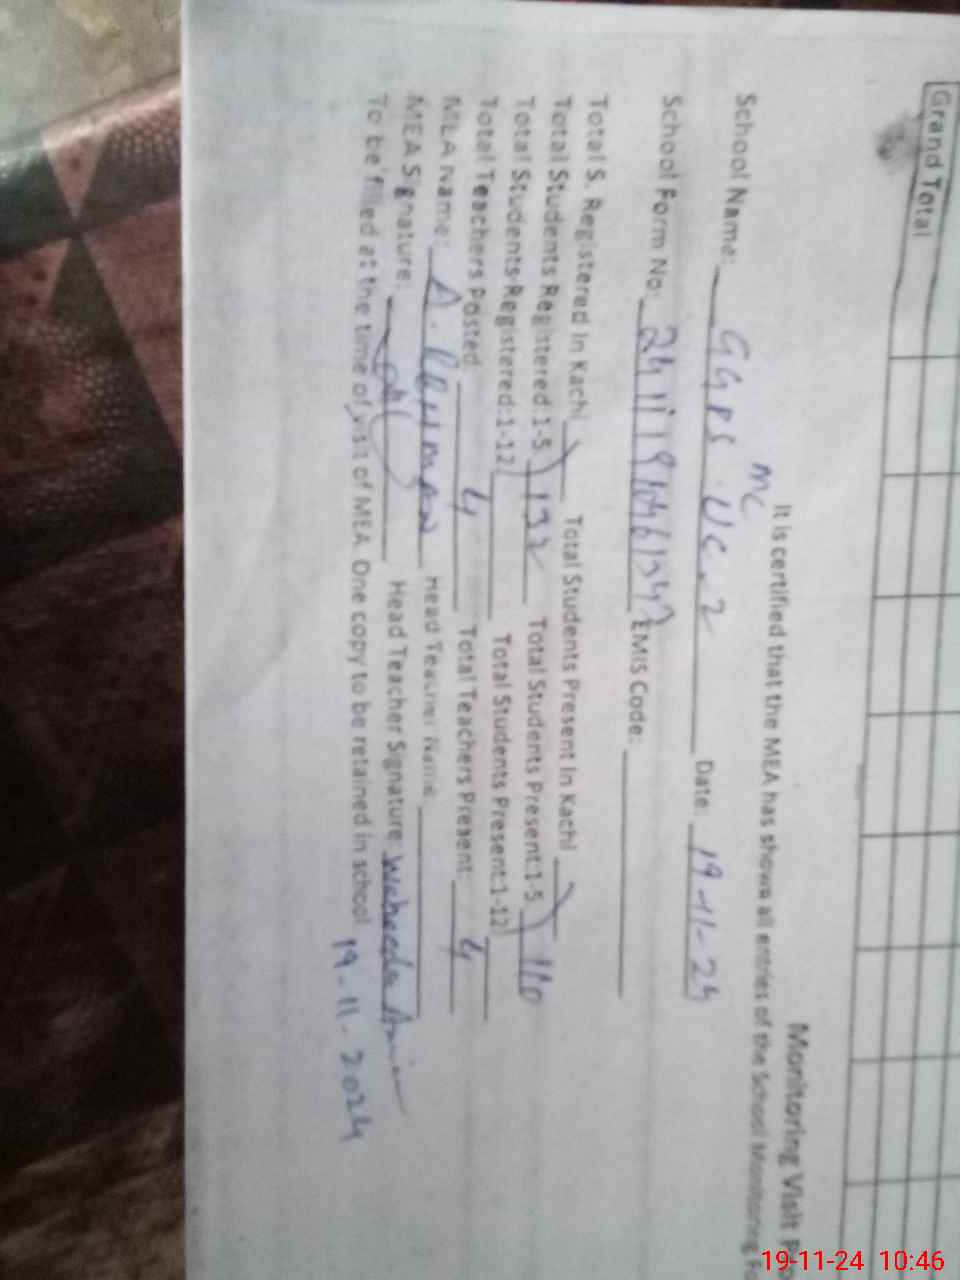 Grand Total
Monitoring Visit
It is certified that the MEA has shown all entries of the School Monitoring
School Name: GGPS MC UC.2 Date: 19-11-24
School Form No: EMIS Code:
Total S. Registered In Kachi Total Students Present In Kachi
Total Students Registered:1-5 132 Total Students Present:1-5 110
Total Students Registered:1-12 Total Students Present:1-12
Total Teachers Posted: 4 Total Teachers Present: 4
MEA Name: A. Rehman Head Teacher Name:
MEA Signature: Head Teacher Signature: Waheeda
To be filled at the time of visit of MEA. One copy to be retained in school
19-11-2024
19-11-24 10:46